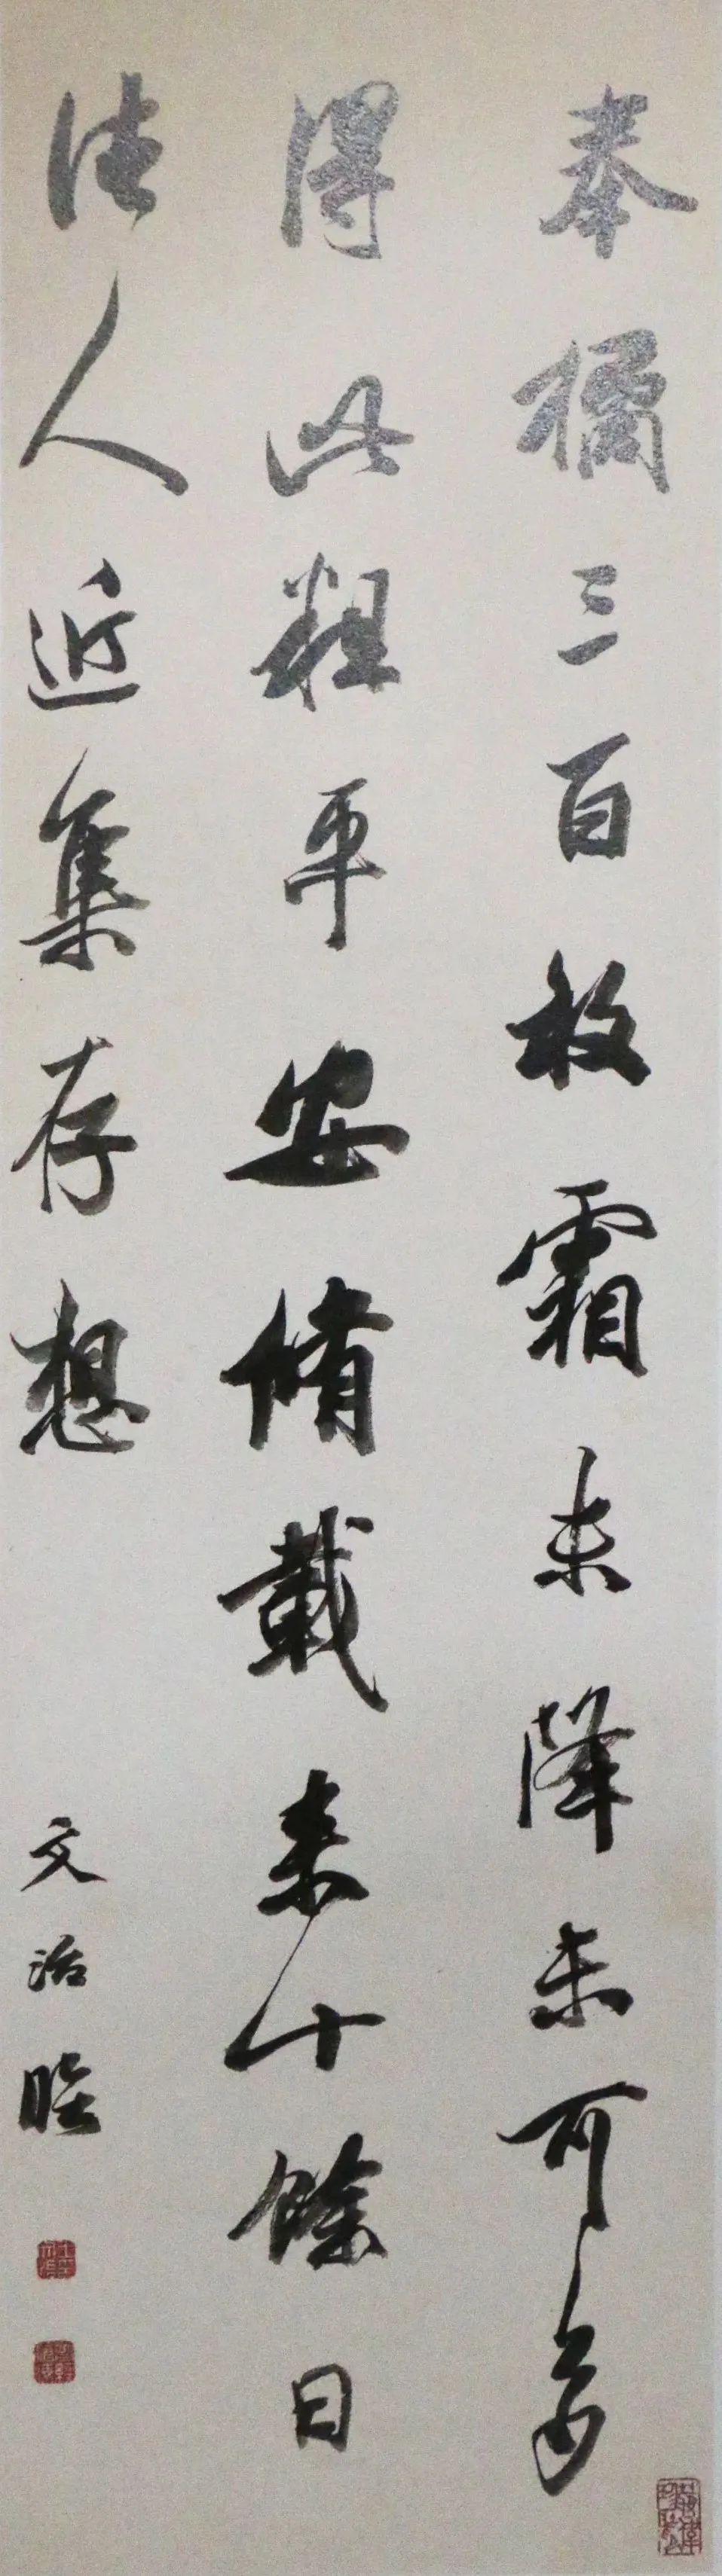 奉橘三百枚霜未降未可多
得此粗平安脩載来十餘日
諸人近集存想
文治臨